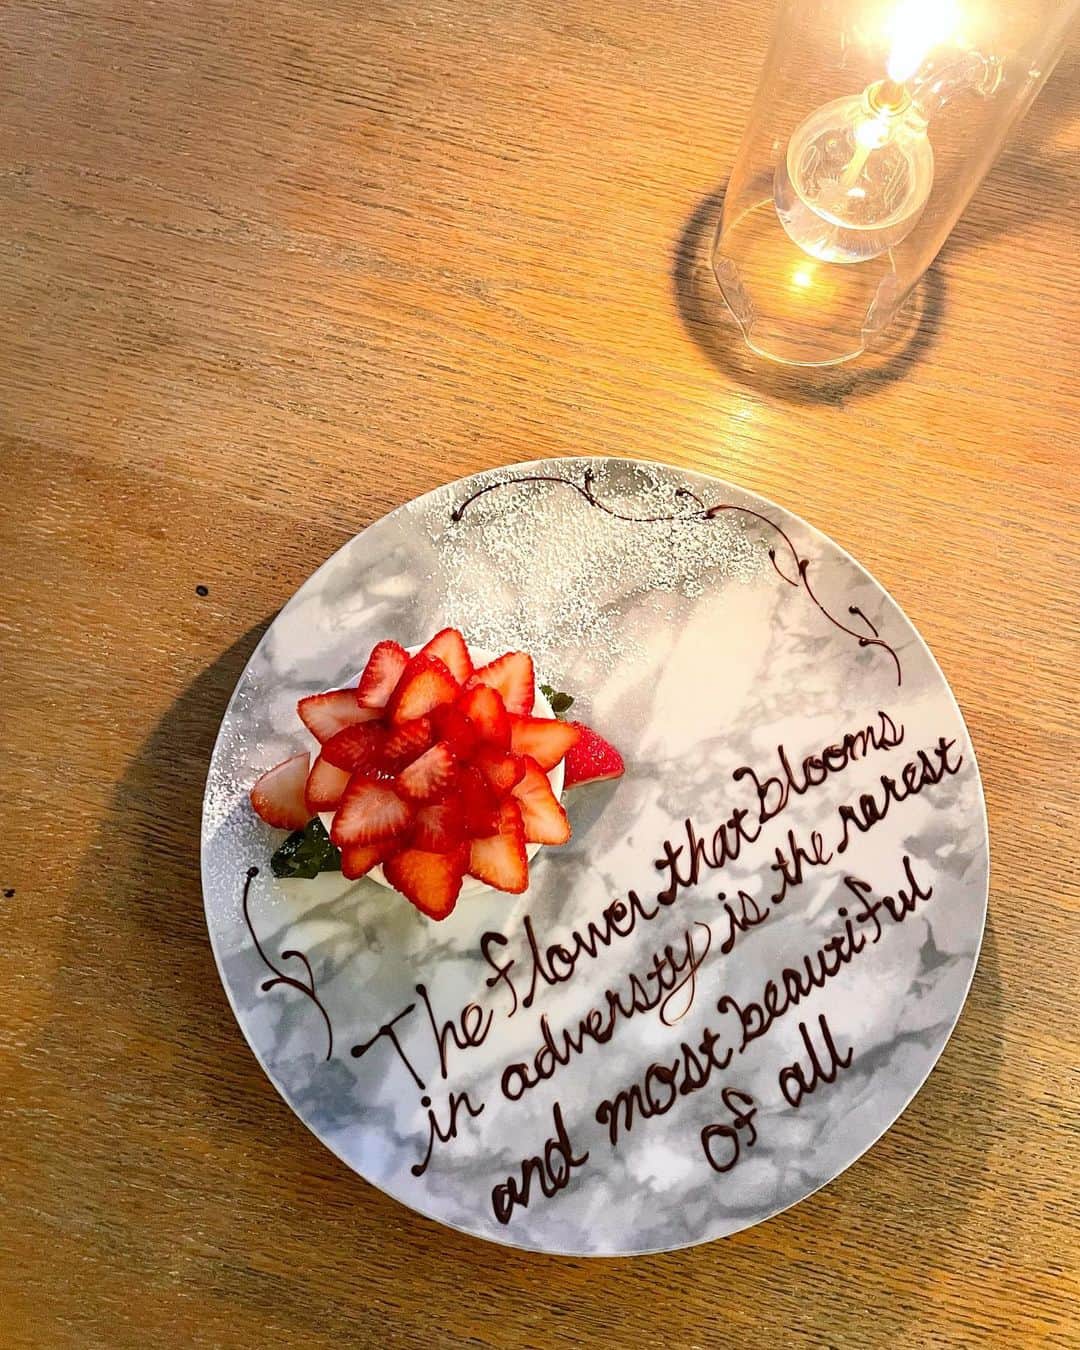 The flower that blooms
in adversty is the rarest
and most beautiful
of all